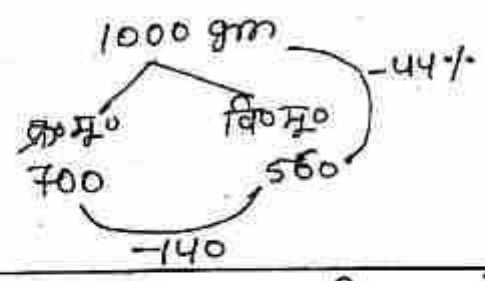 1000 gm
-44%
क्र०मू० वि०मू०
700 560
-140